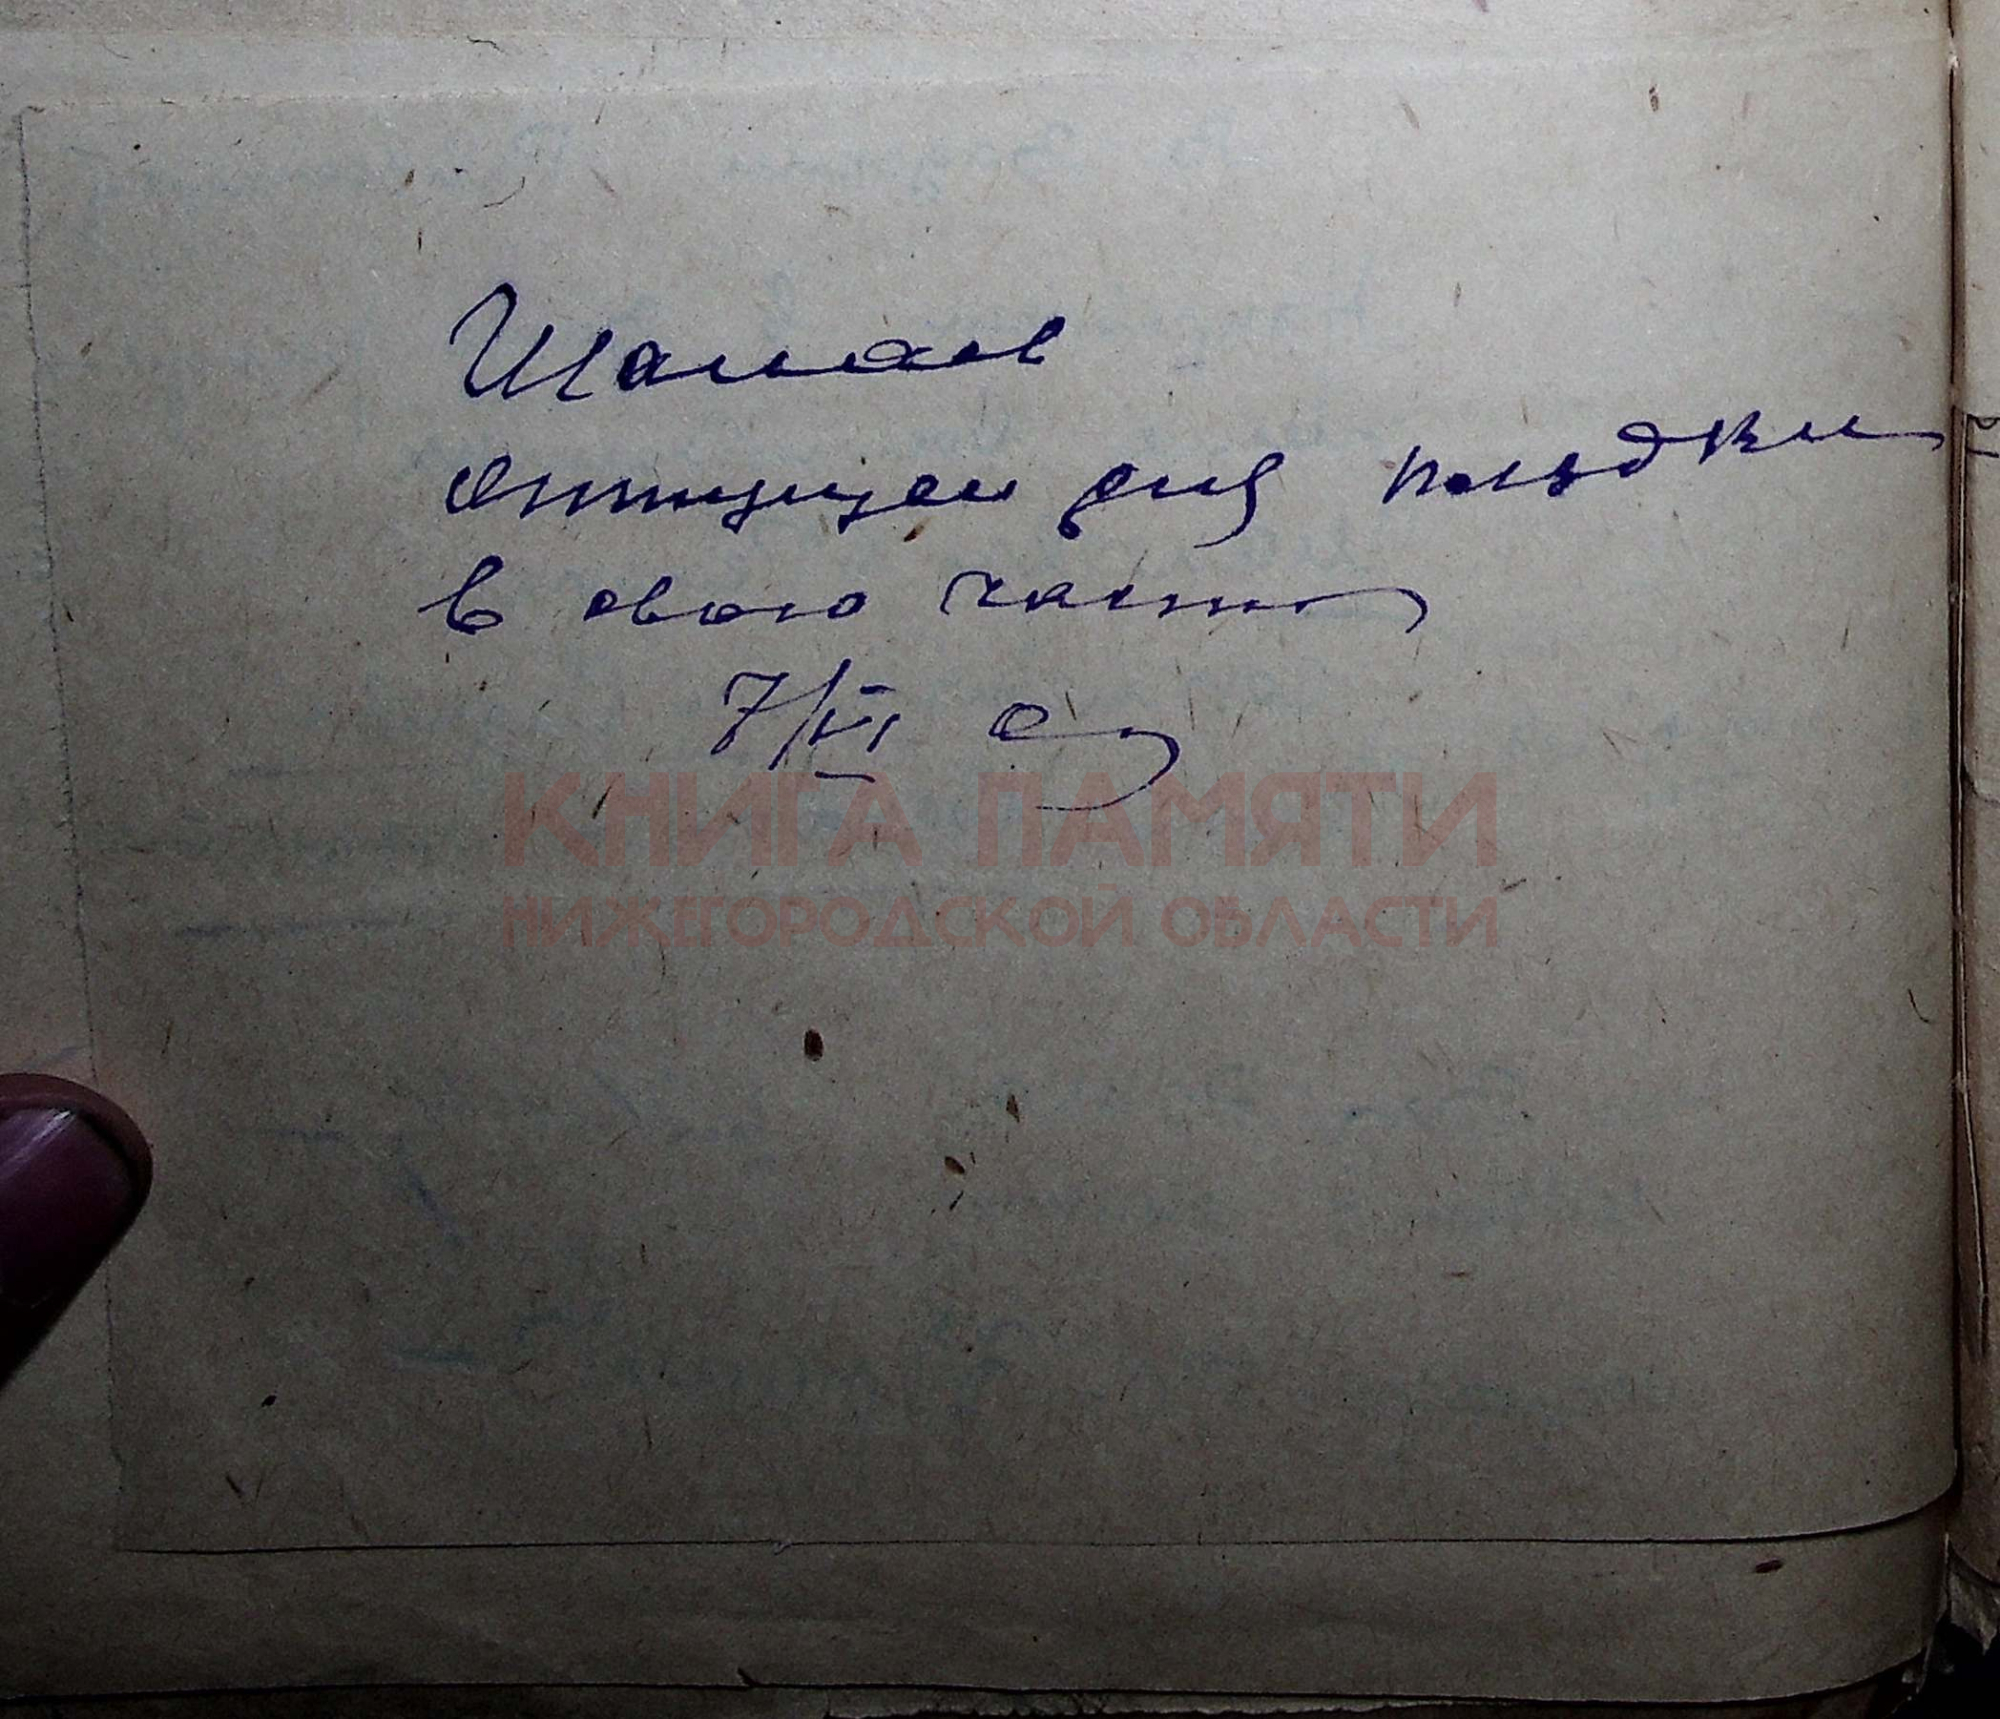 отпущен для поездки
в свою часть
7/VI
КНИГА ПАМЯТИ
НИЖЕГОРОДСКОЙ ОБЛАСТИ